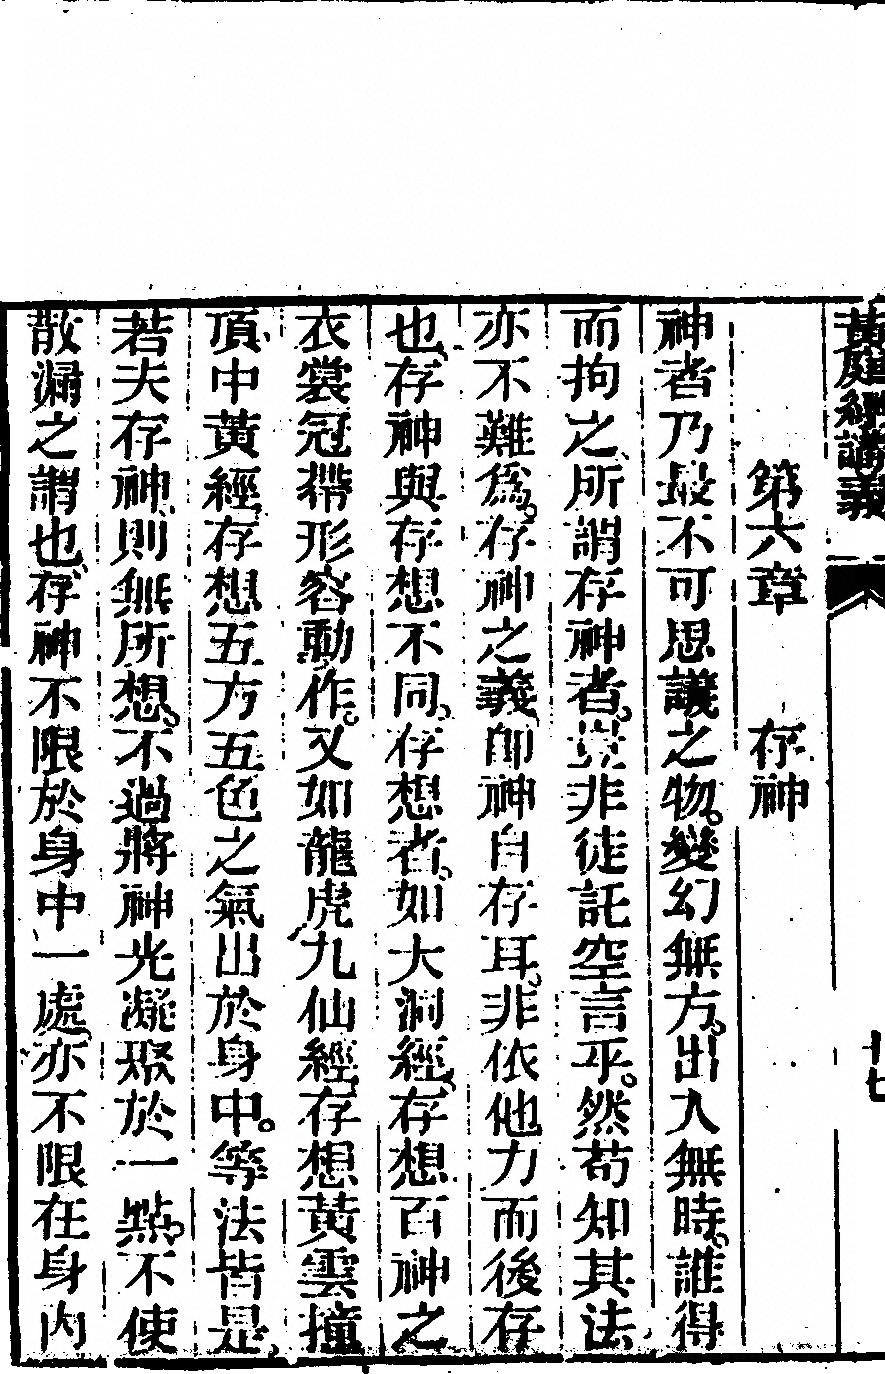 黃庭經講義
十七
第六章　存神
神者乃最不可思議之物。變幻無方。出入無時。誰得
而拘之、所謂存神者。豈非徒託空言乎。然苟知其法
亦不難為。存神之義、即神自存耳。非依他力而後存
也、存神與存想不同。存想者。如大洞經、存想百神之
衣裳冠帶形容動作。又如龍虎九仙經、存想黃雲撞
頂、中黃經、存想五方五色之氣出於身中。等法皆是、
若夫存神、則無所想。不過將神光凝聚於一點。不使
散漏之謂也、存神不限於身中一處、亦不限在身內